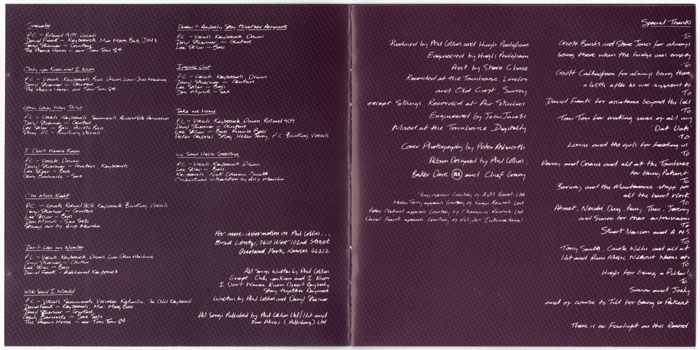 Sussudio
P.C. - Roland 909, Vocals
David Frank - Keyboards, Mini Moog Bass, DMX
Daryl Stuermer - Guitar
The Phenix Horns - arr Tom Tom 84
Only you Know and I Know
P.C. - Vocals, Keyboards, Bass, Drums, Linn Drum Machine
Daryl Stuermer - Guitars
The Phenix Horns - arr Tom Tom 84
Long Long Way To Go
Daryl Stuermer - Guitars
Sting, P.C. - Backing Vocals
I Don't Wanna Know
P.C. - Vocals, Drums
Daryl Stuermer - Guitars, Keyboards
Lee Sklar - Bass
Gary Barnacle - Sax
One More Night
Daryl Stuermer - Guitars
Lee Sklar - Bass
Don Myrick - Sax Solo
Strings arr by Arif Mardin
Don't Lose my Number
P.C. - Vocals, Keyboards, Drums, Linn Drum Machine
Daryl Stuermer - Guitars
Lee Sklar - Bass
David Frank - Additional Keyboards
Who Said I Would
David Frank - Keyboards, Mini Moog Bass
Daryl Stuermer - Guitar
Gary Barnacle - Sax Solo
The Phenix Horns - arr Tom Tom 84
Doesn't Anybody Stay Together Anymore
P.C. - Vocals, Keyboards, Drums
Daryl Stuermer - Guitars
Lee Sklar - Bass
Inside Out
P.C. - Vocals, Keyboards, Drums
Daryl Stuermer - Guitars
Lee Sklar - Bass
Don Myrick - Sax
Take me Home
P.C. - Vocals, Keyboards, Drums, Roland 909
Daryl Stuermer - Guitars
Peter Gabriel, Sting, Helen Terry, P.C. Backing Vocals
We Said Hello Goodbye
P.C. - Vocals, Keyboards, Drums
Lee Sklar - Bass
Orchestral Introduction by Arif Mardin
For more information on Phil Collins...
Brad Lentz, 7610 West 102nd Street
Overland Park, Kansas 66212
All Songs Written by Phil Collins
Except Only you Know and I Know
I Don't Wanna Know, Doesn't Anybody
Stay Together Anymore
Written by Phil Collins and Daryl Stuermer
All Songs Published by Phil Collins Ltd / Hit and
Run Music (Publishing) Ltd
Produced by Phil Collins and Hugh Padgham
Engineered by Hugh Padgham
Asst by Steve Chase
Recorded at the Townhouse London
and Old Croft, Surrey
except Strings Recorded at Air Studios
Engineered by John Jacobs
Mixed at the Townhouse Digitally
Cover Photography by Peter Ashworth
Album Designed by Phil Collins
Baker Dave and Chief Geary
Helen Terry appears Courtesy of Virgin Records Ltd
Peter Gabriel appears Courtesy of Charisma Records Ltd
Special Thanks
To
Geoff Banks and Steve Jones for always
being there when the fridge was empty
To
Geoff Callingham for always being there
To
David Frank for assistance beyond the call
To
Tom Tom for making sense of all my
Dat Dats
To
Louise and the girls for feeding us
To
being Patient
To
Barney and the Maintenance staff for
all the hard Work
To
To
Stuart Newson and AMS
To
Tony Smith, Carole Willis and all at
To
Hugh for being a Pillar
To
Simon and Joely
and of course to Jill for being so Patient
There is no Fairlight on this Record